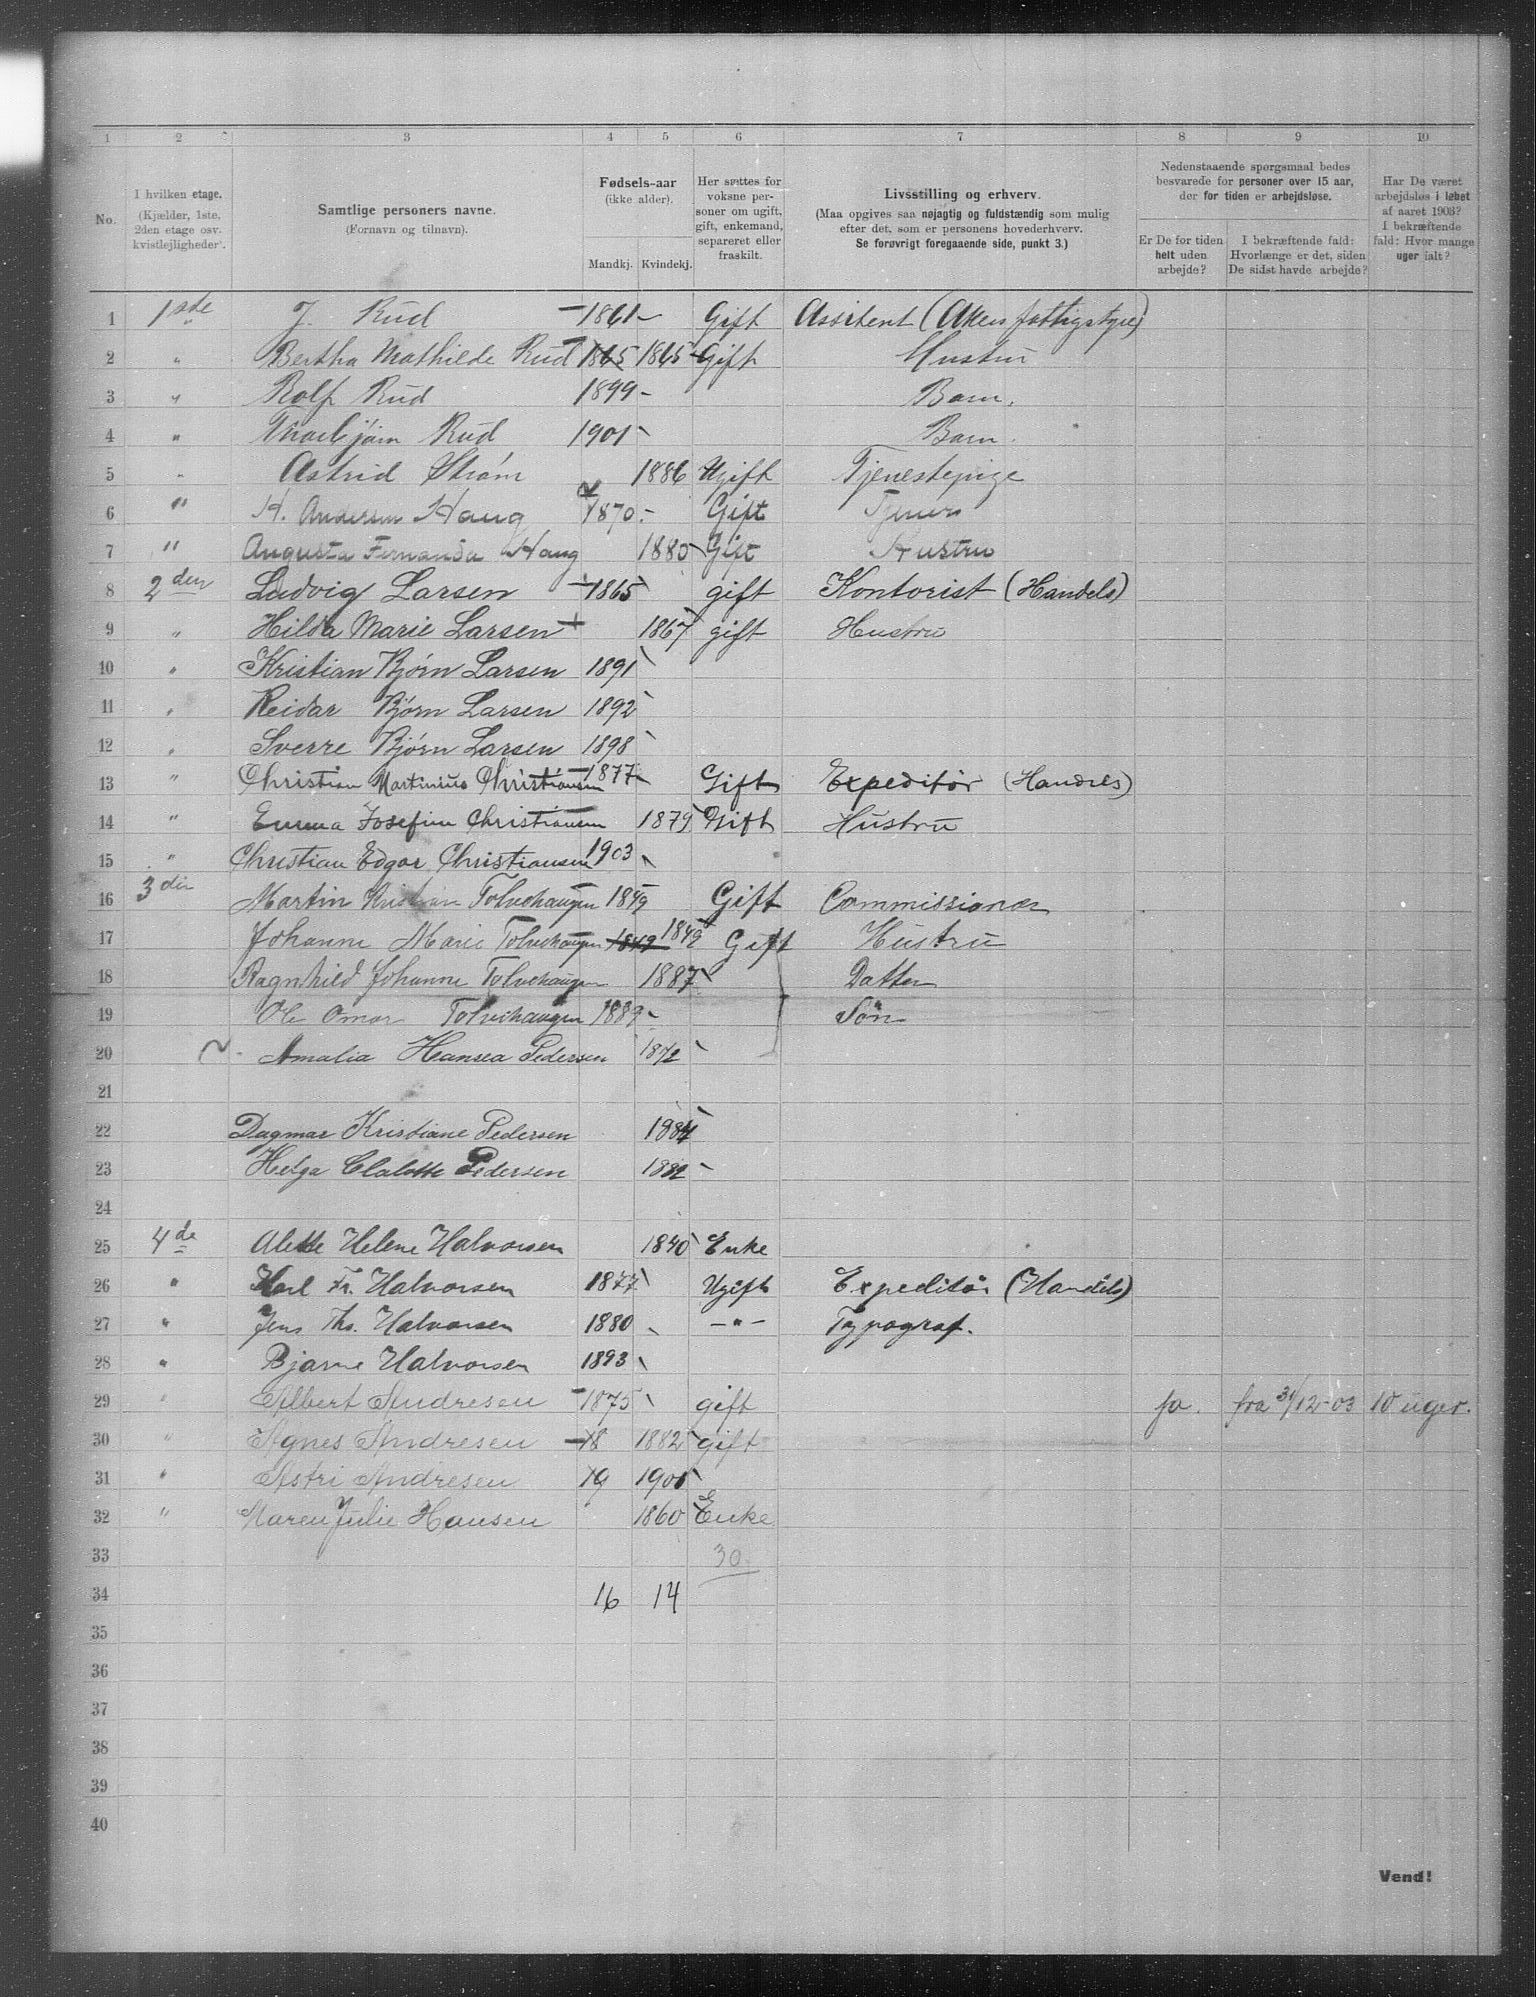 1 2 3 4 5 6 7 8 9 10
No.
I hvilken etage. (Kjælder, 1ste, 2den etage osv. kvistlejligheder).
Samtlige personers navne. (Fornavn og tilnavn).
Fødsels-aar (ikke alder). Mandkj. Kvindekj.
Her sættes for voksne personer om ugift, gift, enkemand, separeret eller fraskilt.
Livsstilling og erhverv. (Maa opgives saa nøjagtig og fuldstændig som mulig efter det, som er personens hovederhverv. Se forøvrigt foregaaende side, punkt 3.)
Nedenstaaende spørgsmaal bedes besvarede for personer over 15 aar, der for tiden er arbejdsløse.
Er De for tiden helt uden arbejde?
I bekræftende fald: Hvorlænge er det, siden De sidst havde arbejde?
Har De været arbejdsløs i løbet af aaret 1903? I bekræftende fald: Hvor mange uger ialt?
1 1ste J. Rud 1861 Gift Assitent (Akers fattigstyre)
2 " Bertha Mathilde Rud 1865 1865 Gift Hustru
3 " Rolf Rud 1899 Barn.
4 " Thorbjørn Rud 1901 Barn.
5 " Astrid Strøm 1886 Ugift Tjenestepige
6 " H. Andersen Haug 1870 Gift Tjener
7 " Augusta Fernanda Haug 1880 Gift Hustru
8 2den Ludvig Larsen 1865 gift Kontorist (Handels)
9 " Hilda Marie Larsen 1867 gift Hustru
10 " Kristian Bjørn Larsen 1891
11 " Reidar Bjørn Larsen 1892
12 " Sverre Bjørn Larsen 1898
13 " Christian Martinius Christiansen 1877 Gift Expeditør (Handels)
14 " Emma Josefine Christiansen 1879 Gift Hustru
15 " Christian Edgar Christiansen 1903
16 3die Martin Kristian Tolvehaugen 1849 Gift Commissionær
17 Johanne Marie Tolvehaugen 1849 1849 Gift Hustru
18 Ragnhild Johanne Tolvehaugen 1887 Datter
19 Ole Omar Tolvehaugen 1889 Søn
20 Amalia Hansea Pedersen 1872
21
22 Dagmar Kristiane Pedersen 1884
23 Helga Clalotte Pedersen 1882
24
25 4de Alette Helene Halvorsen 1840 Enke
26 " Karl Fr. Halvorsen 1877 Ugift Expeditør (Handels)
27 " Jens Th. Halvorsen 1880 -"- Typograf.
28 " Bjarne Halvorsen 1893
29 " Albert Andresen 1875 gift ja. fra 31/12-03 10 uger.
30 " Agnes Andresen 18 1882 gift
31 " Astri Andresen 19 1901
32 " Maren Julie Hansen 1860 Enke
33 30
34 16 14
35
36
37
38
39
40
Vend!